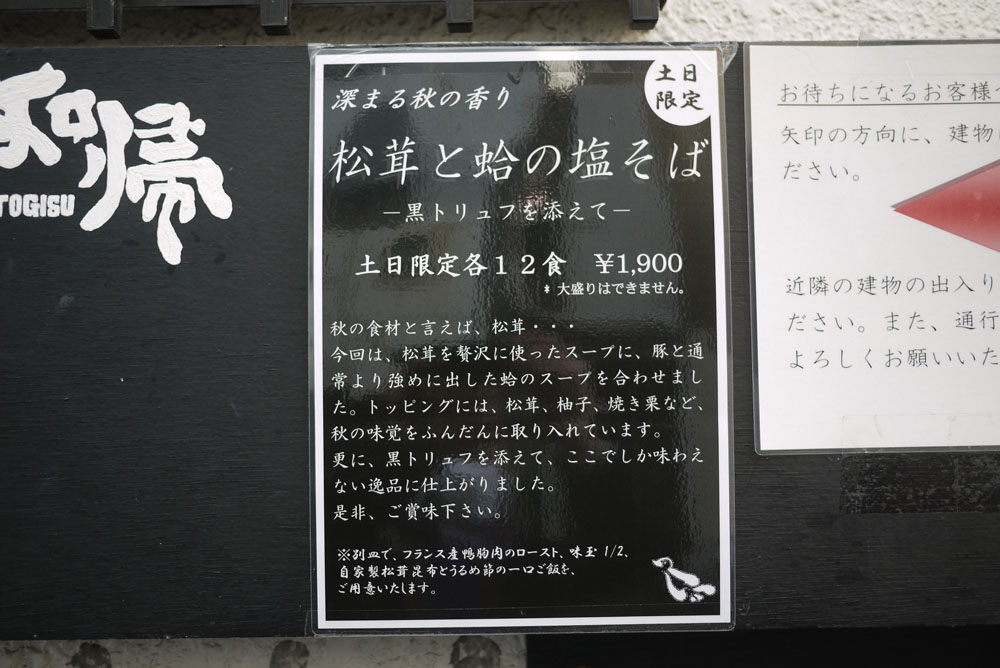 帰
TOGISU
土日
限定
深まる秋の香り
松茸と蛤の塩そば
−黒トリュフを添えて−
土日限定各12食 ¥1,900
* 大盛りはできません。
秋の食材と言えば、松茸・・・
今回は、松茸を贅沢に使ったスープに、豚と通
常より強めに出した蛤のスープを合わせまし
た。トッピングには、松茸、柚子、焼き栗など、
秋の味覚をふんだんに取り入れています。
更に、黒トリュフを添えて、ここでしか味わえ
ない逸品に仕上がりました。
是非、ご賞味下さい。
※別皿で、フランス産鴨胸肉のロースト、味玉 1/2、
自家製松茸昆布とうるめ節の一口ご飯を、
ご用意いたします。
お待ちになるお客様
矢印の方向に、建物
ださい。
近隣の建物の出入り
ださい。また、通行
よろしくお願いいた